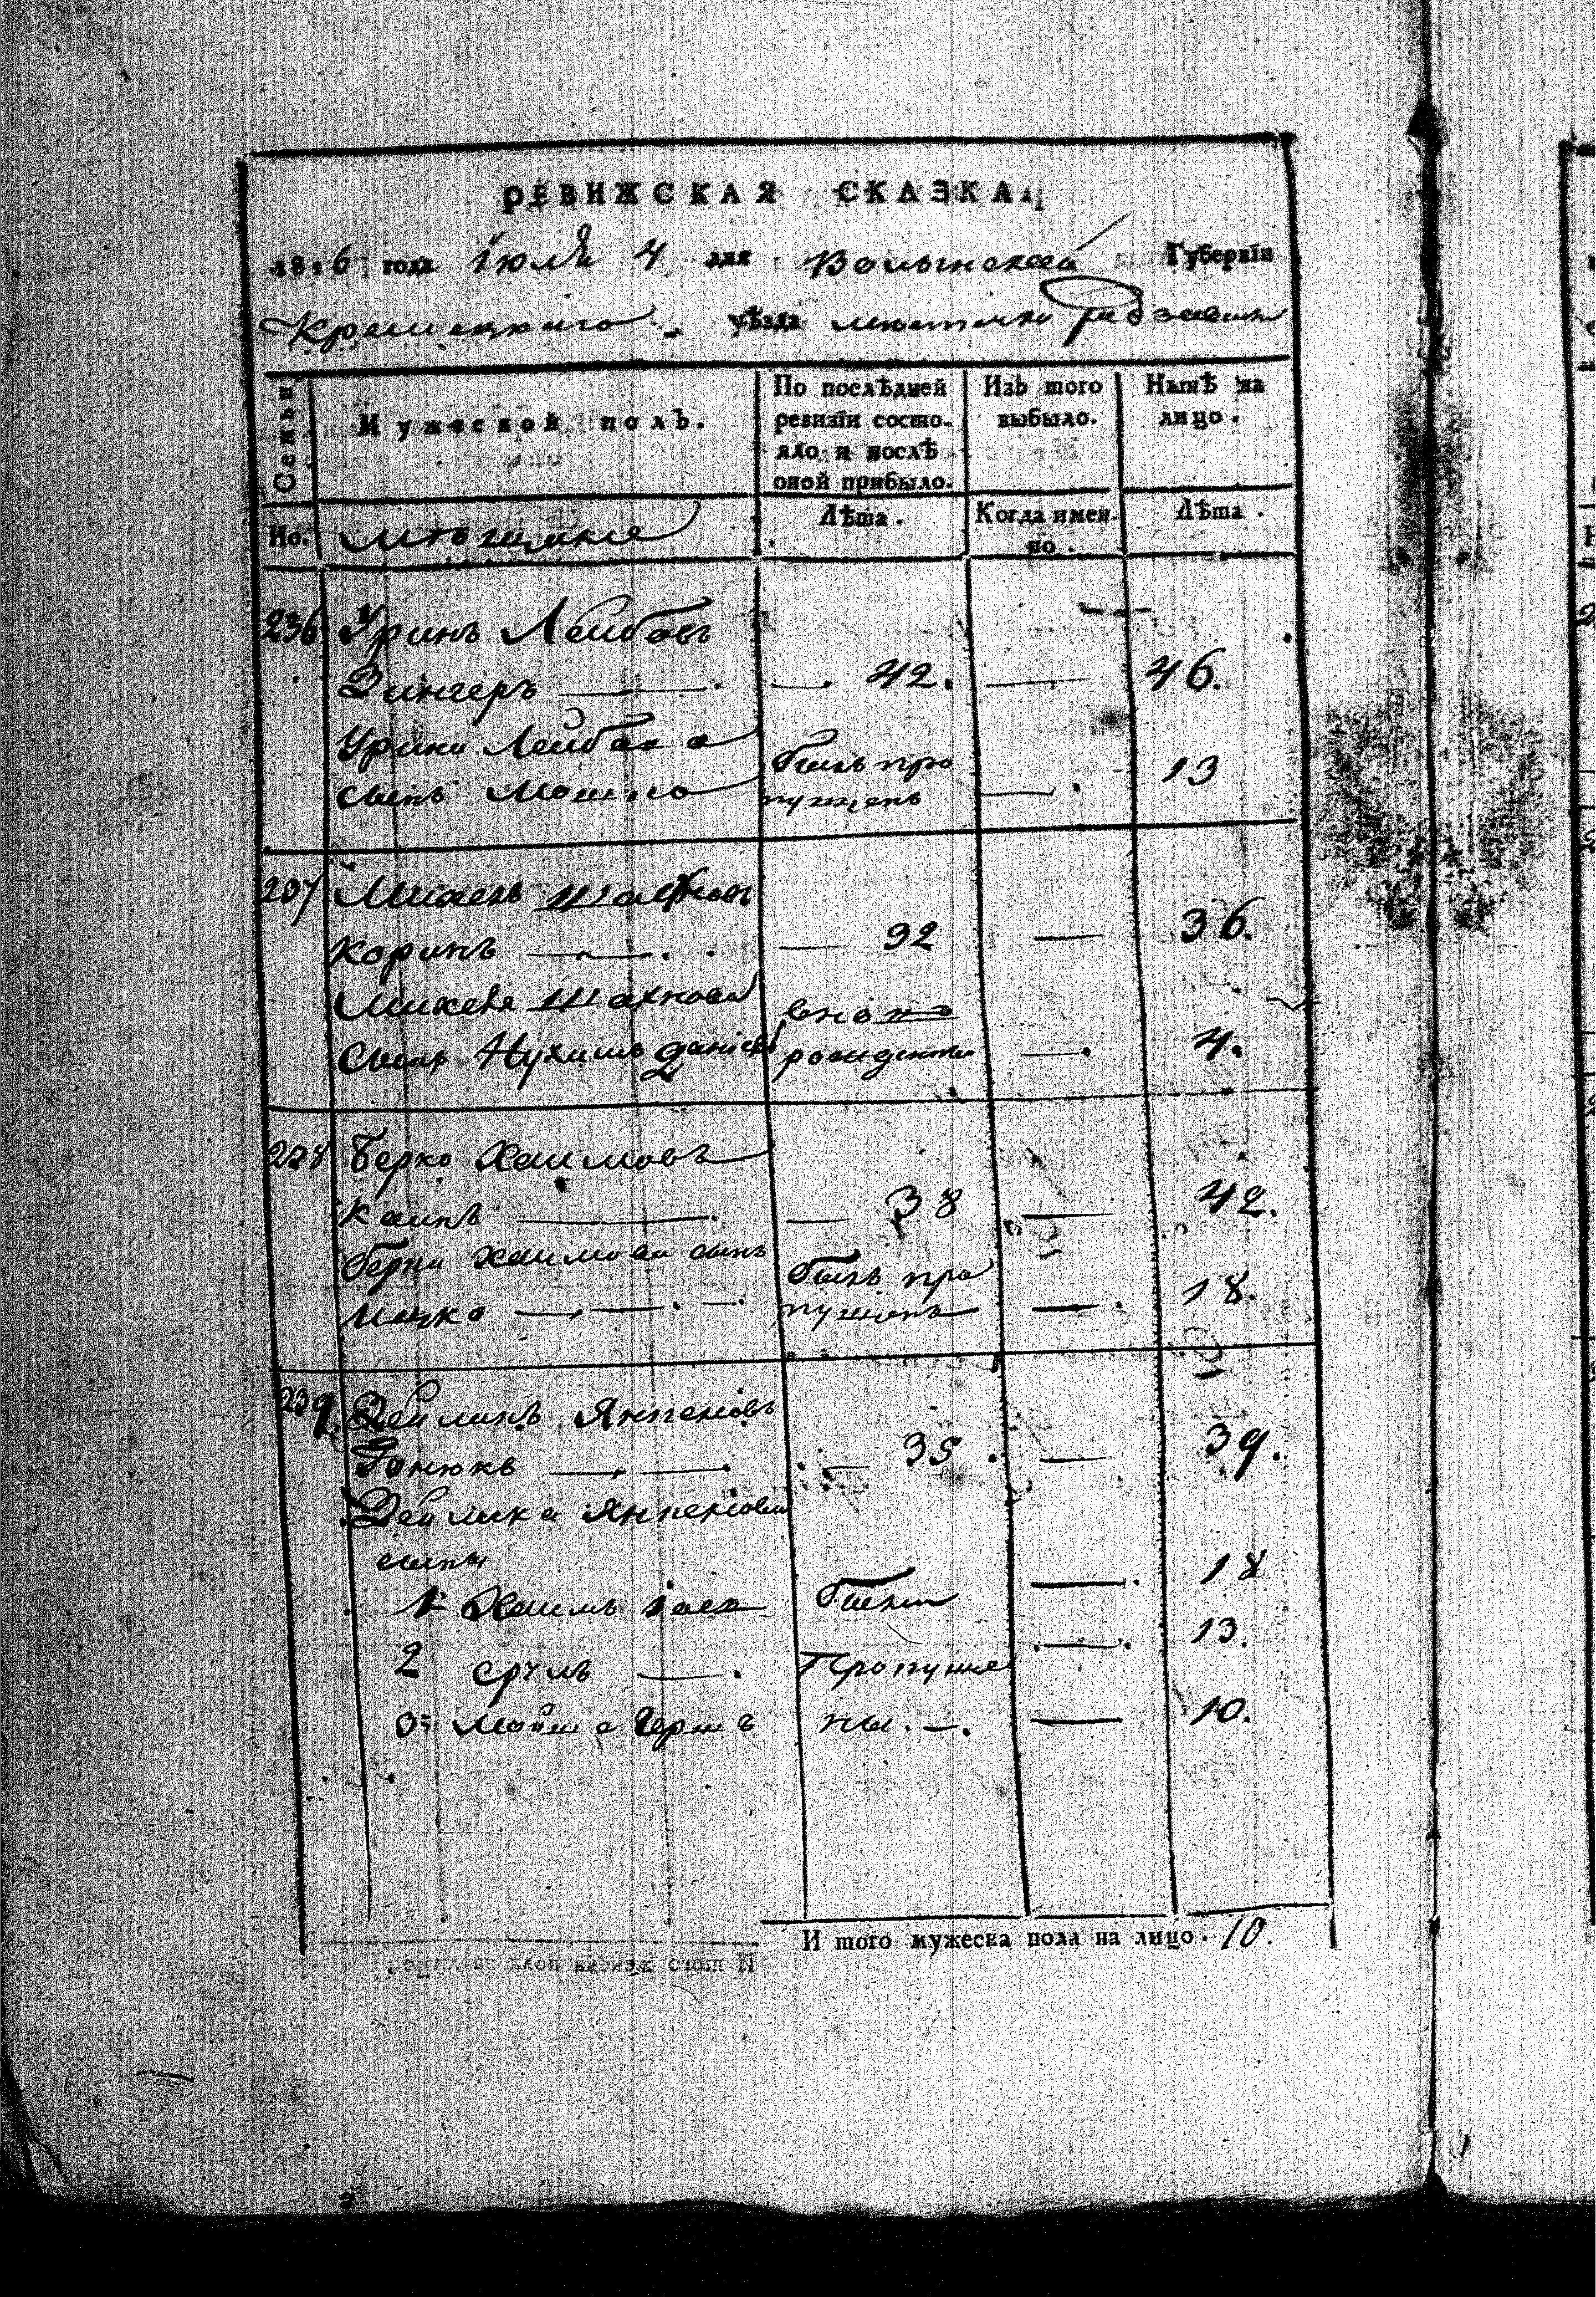 РЕВИЖСКАЯ СКАЗКА.
1816 года Iюля 4 дня Волынской Губернїи
Кременецкаго уѣзда местечка Радзивил
Семьи
Мужеской полъ.
По послѣдней ревизїи состо-
яло и послѣ
оной прибыло.
Изъ того
выбыло.
Нынѣ на
лицо.
Но.
мѣщане
Лѣта.
Когда имен-
но.
Лѣта.
236 Уринъ Лейбовъ
Зингеръ — 42. — 46.
Урина Лейбова
сынъ Мошко былъ про
пущенъ — 13
237 Михель Шахновъ
Коринъ — 32 — 36.
Михеля Шахнова вново
Сынъ Нухимъ Данiель рожденны — 4.
238 Берко Хаимовъ
Каинъ — 38 — 42.
Берка Хаимова сынъ былъ про
Ицко — пущенъ — 18.
239 Зейликъ Янкеліовъ
Гонюкъ — 35 — 39.
Зейлика Янкеліова
сыны
1й Хаимъ былы — 18
2 Сруль — Пропуще — 13.
3й Мойше Гершъ ны. — 10.
И того мужеска пола на лицо. 10.
И того женска пола на лицо.